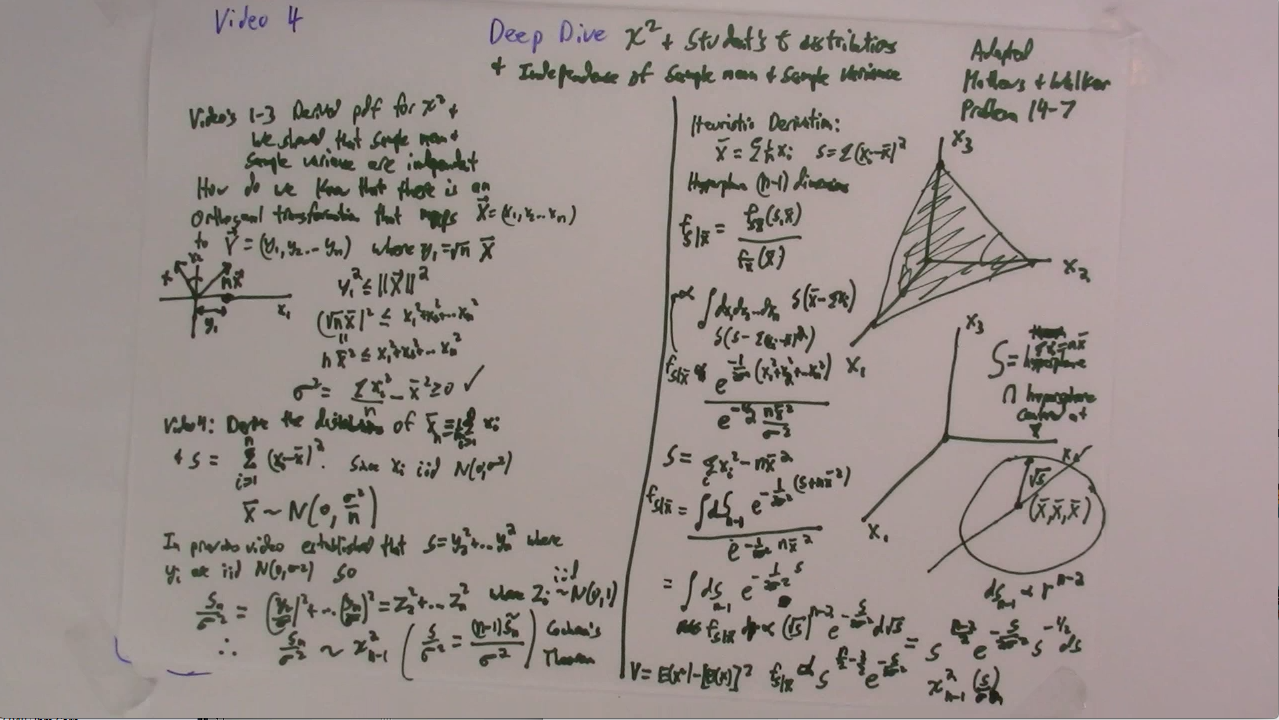 Video 4
Deep Dive χ² + Student's t distributions
+ Independence of Sample mean + Sample Variance
Adapted
Mathews + Walker
Problem 14-7
Video's 1-3 Derived pdf for χ² +
we showed that sample mean +
sample variance are independent
How do we know that there is an
orthogonal transformation that maps X⃗ = (x₁, x₂ ... xₙ)
to Y⃗ = (y₁, y₂ ... yₙ) where y₁ = √n X̄
x₁
y₁
y₁² ≤ ||X⃗||²
(√n x̄)² ≤ x₁² + x₂² + ... xₙ²
n x̄² ≤ x₁² + x₂² + ... xₙ²
σ² = Σxᵢ²/n − x̄² ≥ 0 ✓
Video 4: Derive the distribution of x̄ₙ = 1/n Σ xᵢ
+ S = Σ (xᵢ − x̄)². Since xᵢ iid N(0, σ²)
x̄ ~ N(0, σ²/n)
In previous video established that S = y₂² + ... yₙ² where
yᵢ are iid N(0, σ²) so
Sₙ/σ² = (y₂/σ)² + ... (yₙ/σ)² = Z₂² + ... Zₙ² where Zᵢ iid ~ N(0,1)
∴ Sₙ/σ² ~ χ²ₙ₋₁ (S/σ² = (n−1)S̃ₙ/σ²) Cochran's
Theorem
Heuristic Derivation:
x̄ = Σ 1/n xᵢ S = Σ(xᵢ − x̄)²
Hyperplane (n−1) dimensions
f_S|x̄ = f_Sx̄(S, x̄) / f_x̄(x̄)
∝ ∫ dx₁ dx₂ ... dxₙ δ(x̄ − Σxᵢ)
δ(S − Σ(xᵢ − x̄)²)
f_S|x̄ ∝ e^(−1/2σ² (x₁² + x₂² + ... xₙ²)) / e^(−1/2 n x̄²/σ²)
S = Σ xᵢ² − n x̄²
f_S|x̄ = ∫ dSₙ₋₁ e^(−1/2σ² (S + n x̄²)) / e^(−1/2σ² n x̄²)
= ∫ dSₙ₋₁ e^(−1/2σ² S)
f_S|x̄ ∝ (√S)ⁿ⁻² e^(−S/2σ²) d√S = S^((n−2)/2) e^(−S/2σ²) S^(−1/2) dS
V = E(x²) − [E(x)]² f_S|x̄ ∝ S^(n/2 − 3/2) e^(−S/2σ²) χ²ₙ₋₁ (S/σ²)
x₃
x₂
x₁
x₃
x₁
S = hyperplane
∩ hypersphere
centered at
x̄
√S
(x̄, x̄, x̄)
dSₙ₋₁ ∝ rⁿ⁻²